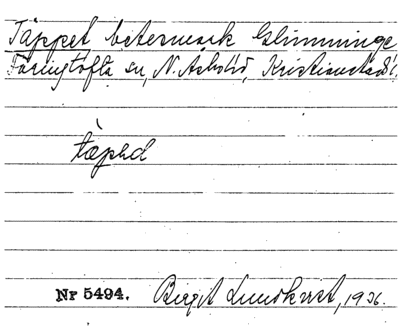 Täppet betesmark Glimminge
Färingtofta sn, N. Åsbo hd, Kristianstads l.
tæpəd
Nr 5494. Birgit Lundkvist, 1936.